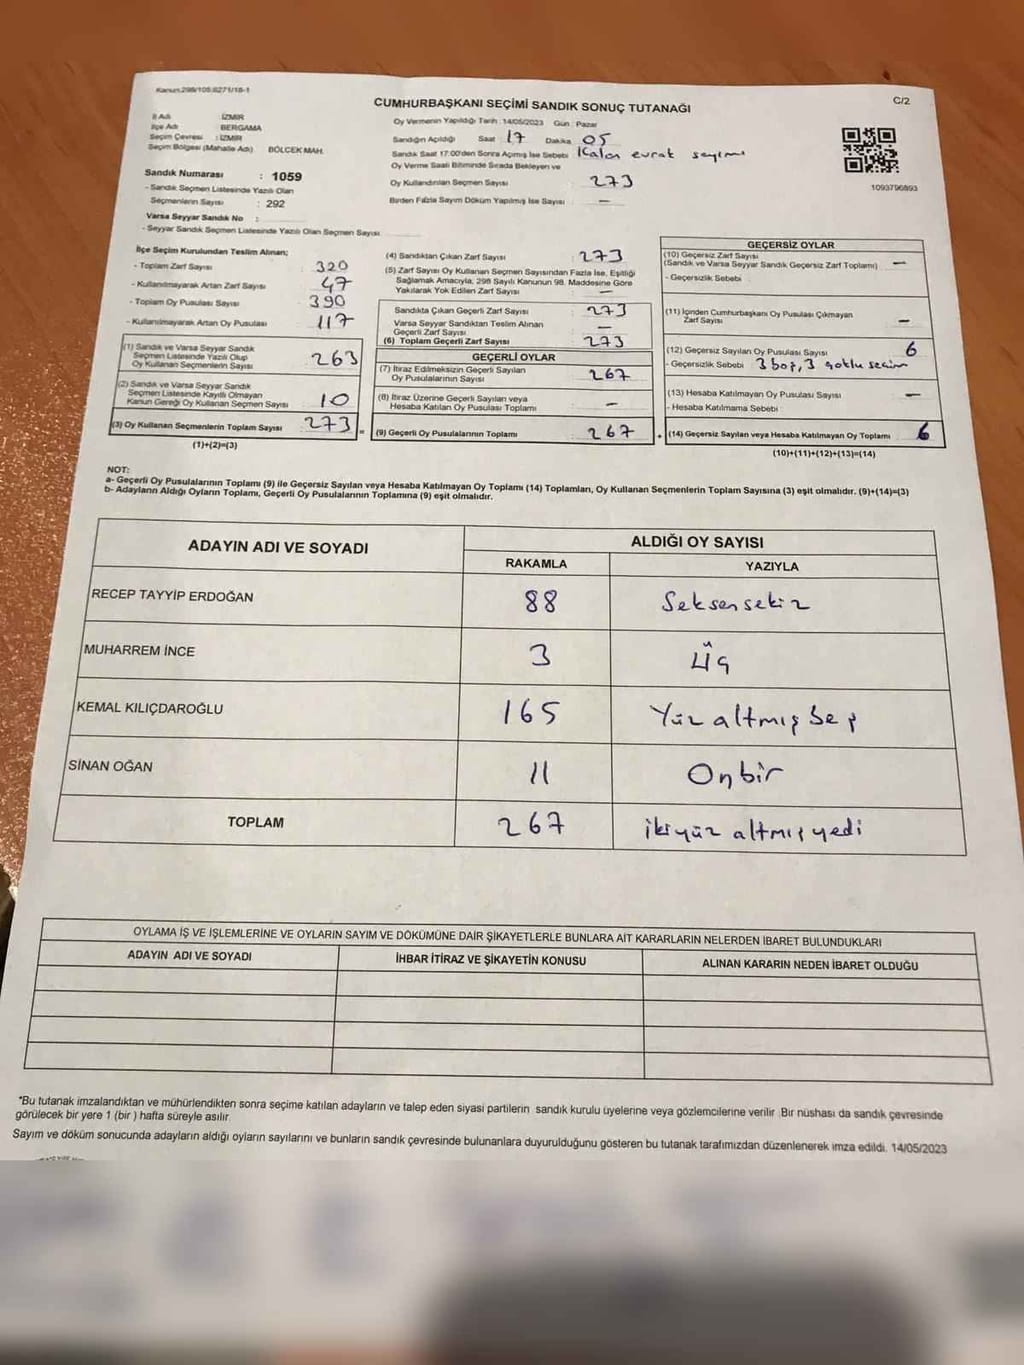 Kanun:298/105;6271/18-1
C/2
CUMHURBAŞKANI SEÇİMİ SANDIK SONUÇ TUTANAĞI
İl Adı : İZMİR
İlçe Adı : BERGAMA
Seçim Çevresi : İZMİR
Seçim Bölgesi (Mahalle Adı) : BÖLCEK MAH.
Sandık Numarası : 1059
- Sandık Seçmen Listesinde Yazılı Olan
Seçmenlerin Sayısı : 292
Varsa Seyyar Sandık No :
- Seyyar Sandık Seçmen Listesinde Yazılı Olan Seçmen Sayısı
Oy Vermenin Yapıldığı Tarih : 14/05/2023 Gün : Pazar
Sandığın Açıldığı Saat : 17 Dakika 05
Sandık Saat 17:00'den Sonra Açımış İse Sebebi : Kalan evrak sayımı
Oy Verme Saati Bitiminde Sırada Bekleyen ve
Oy Kullandırılan Seçmen Sayısı : 273
Birden Fazla Sayım Döküm Yapılmış İse Sayısı : —
1093796893
İlçe Seçim Kurulundan Teslim Alınan;
- Toplam Zarf Sayısı 320
- Kullanılmayarak Artan Zarf Sayısı : 47
- Toplam Oy Pusulası Sayısı : 390
- Kullanılmayarak Artan Oy Pusulası : 117
(1) Sandık ve Varsa Seyyar Sandık
Seçmen Listesinde Yazılı Olup
Oy Kullanan Seçmenlerin Sayısı : 263
(2) Sandık ve Varsa Seyyar Sandık
Seçmen Listesinde Kayıtlı Olmayan
Kanun Gereği Oy Kullanan Seçmen Sayısı : 10
(3) Oy Kullanan Seçmenlerin Toplam Sayısı : 273 =
(1)+(2)=(3)
(4) Sandıktan Çıkan Zarf Sayısı : 273
(5) Zarf Sayısı Oy Kullanan Seçmen Sayısından Fazla İse, Eşitliği
Sağlamak Amacıyla, 298 Sayılı Kanunun 98. Maddesine Göre
Yakılarak Yok Edilen Zarf Sayısı : —
Sandıkta Çıkan Geçerli Zarf Sayısı : 273
Varsa Seyyar Sandıktan Teslim Alınan
Geçerli Zarf Sayısı : —
(6) Toplam Geçerli Zarf Sayısı : 273
GEÇERLİ OYLAR
(7) İtiraz Edilmeksizin Geçerli Sayılan
Oy Pusulalarının Sayısı : 267
(8) İtiraz Üzerine Geçerli Sayılan veya
Hesaba Katılan Oy Pusulası Toplamı : —
(9) Geçerli Oy Pusulalarının Toplamı : 267 +
GEÇERSİZ OYLAR
(10) Geçersiz Zarf Sayısı
(Sandık ve Varsa Seyyar Sandık Geçersiz Zarf Toplamı) : —
- Geçersizlik Sebebi :
(11) İçinden Cumhurbaşkanı Oy Pusulası Çıkmayan
Zarf Sayısı : —
(12) Geçersiz Sayılan Oy Pusulası Sayısı : 6
- Geçersizlik Sebebi : 3 boş, 3 çoklu seçim
(13) Hesaba Katılmayan Oy Pusulası Sayısı : —
- Hesaba Katılmama Sebebi :
(14) Geçersiz Sayılan veya Hesaba Katılmayan Oy Toplamı : 6
(10)+(11)+(12)+(13)=(14)
NOT:
a- Geçerli Oy Pusulalarının Toplamı (9) ile Geçersiz Sayılan veya Hesaba Katılmayan Oy Toplamı (14) Toplamları, Oy Kullanan Seçmenlerin Toplam Sayısına (3) eşit olmalıdır. (9)+(14)=(3)
b- Adayların Aldığı Oyların Toplamı, Geçerli Oy Pusulalarının Toplamına (9) eşit olmalıdır.
ADAYIN ADI VE SOYADI
ALDIĞI OY SAYISI
RAKAMLA YAZIYLA
RECEP TAYYİP ERDOĞAN 88 Seksensekiz
MUHARREM İNCE 3 üç
KEMAL KILIÇDAROĞLU 165 Yüz altmış beş
SİNAN OĞAN 11 Onbir
TOPLAM 267 ikiyüz altmış yedi
OYLAMA İŞ VE İŞLEMLERİNE VE OYLARIN SAYIM VE DÖKÜMÜNE DAİR ŞİKAYETLERLE BUNLARA AİT KARARLARIN NELERDEN İBARET BULUNDUKLARI
ADAYIN ADI VE SOYADI İHBAR İTİRAZ VE ŞİKAYETİN KONUSU ALINAN KARARIN NEDEN İBARET OLDUĞU
*Bu tutanak imzalandıktan ve mühürlendikten sonra seçime katılan adayların ve talep eden siyasi partilerin sandık kurulu üyelerine veya gözlemcilerine verilir. Bir nüshası da sandık çevresinde
görülecek bir yere 1 (bir ) hafta süreyle asılır.
Sayım ve döküm sonucunda adayların aldığı oyların sayılarını ve bunların sandık çevresinde bulunanlara duyurulduğunu gösteren bu tutanak tarafımızdan düzenlenerek imza edildi. 14/05/2023